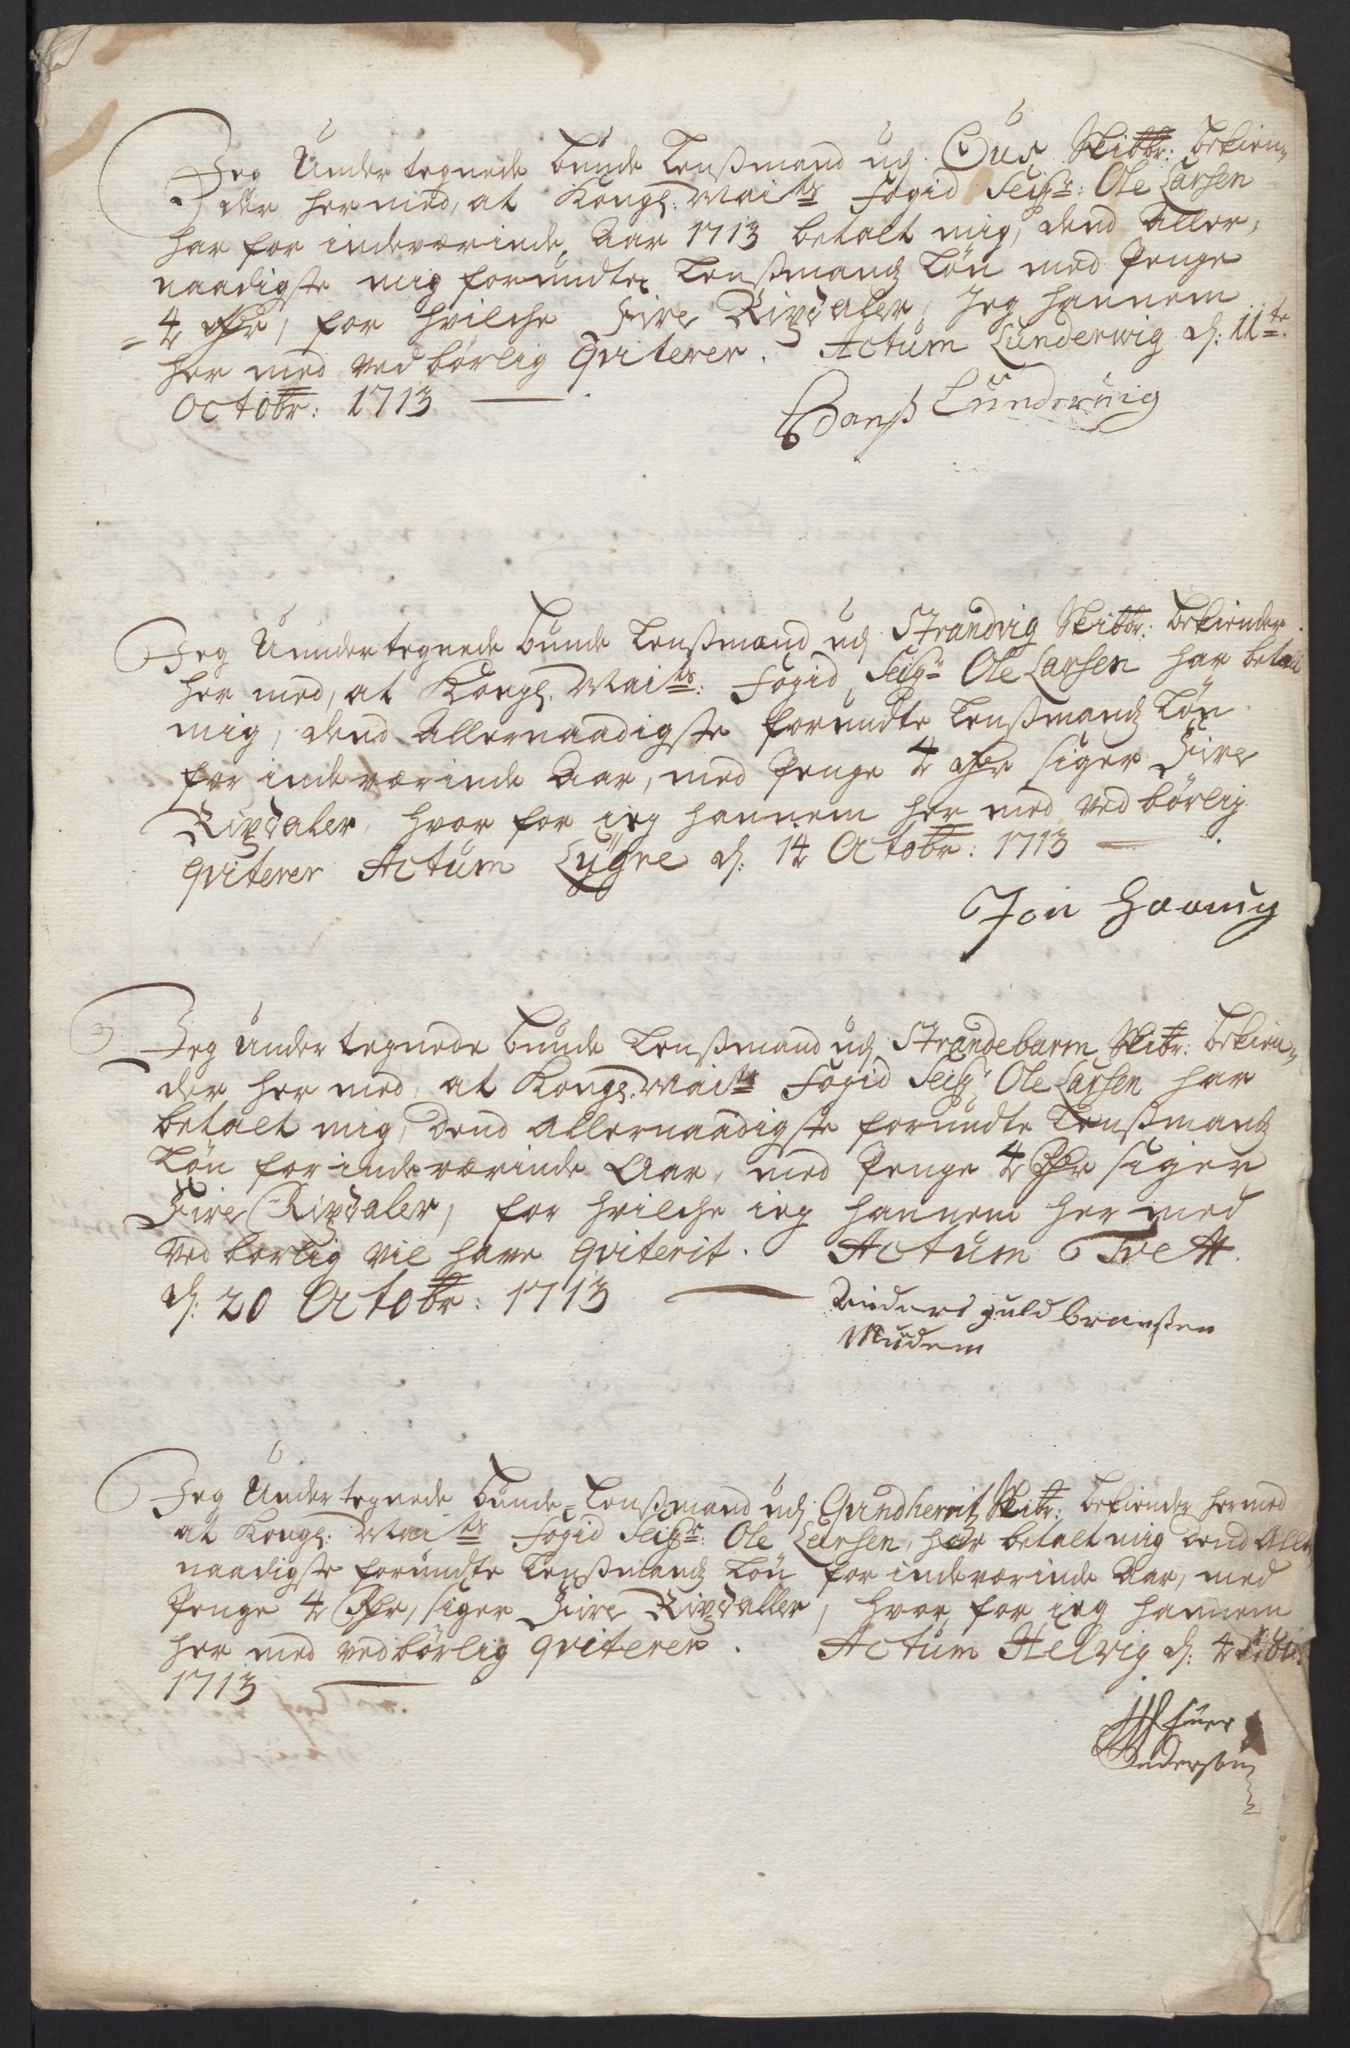 Jeg Under tegnede bunde Lenßmand udj Ous Skibbr: bekien=
der hermed, at Kongl: Maits Fogid Seigr: Ole Larsen
har for indeværinde Aar 1713 betalt mig, dend Aller=
naadigste mig forundte Lenßmandz Løn med Penge
= 4 Rdr, for hvilche Fire Rixdaler, Jeg hannem
her med vedbørlig qviterer. Actum Lunderwig d: 11te
Octobr: 1713
Hanß Lundervig
Jeg Unndertegnede bunde Lenßmand udj Strandvig Skibbr: bekiender
her med, at Kongl. Maits: Fogid Seigr Ole Larsen har betalt
mig, dend Allernaadigste forundte Lenßmandz Løn
for indeværinde Aar, med Penge 4 Rdr siger Fire
Rixdaler, hvor for ieg hannem her med vedbørlig
qviterer Actum Lygre d: 14 Octobr: 1713
Jon
Jeg Under tegnede bunde Lenßmand udj Strandebarm Skibr: bekien=
der her med, at Kongl. Maits Fogid Seigr Ole Larsen har
betalt mig, Dend Allernaadigste forundte Lenßmandz
Løn for indeværinde Aar, med Penge 4 Rdr siger
Fire Rixdaler, for hvilche ieg hannem her med
vedborlig vil have qviterit. Actum Tvett
d: 20 Octobr: 1713
Anders guldbransßen
Mudem
Jeg Under tegnede bunde=Lenßmand udj Qvindherrit Skibr: bekiender hermed
at Kongl: Maits Fogid Seigr: Ole Larsen, har betalt mig Dend Aller
naadigste forundte Lenßmandz Løn for indeværinde Aar, med
Penge 4 Rdr, siger Fire Rixdaller, hvor for ieg hannem
her med vedbørlig qviterer. Actum Helvig d: 4
1713
Anderson